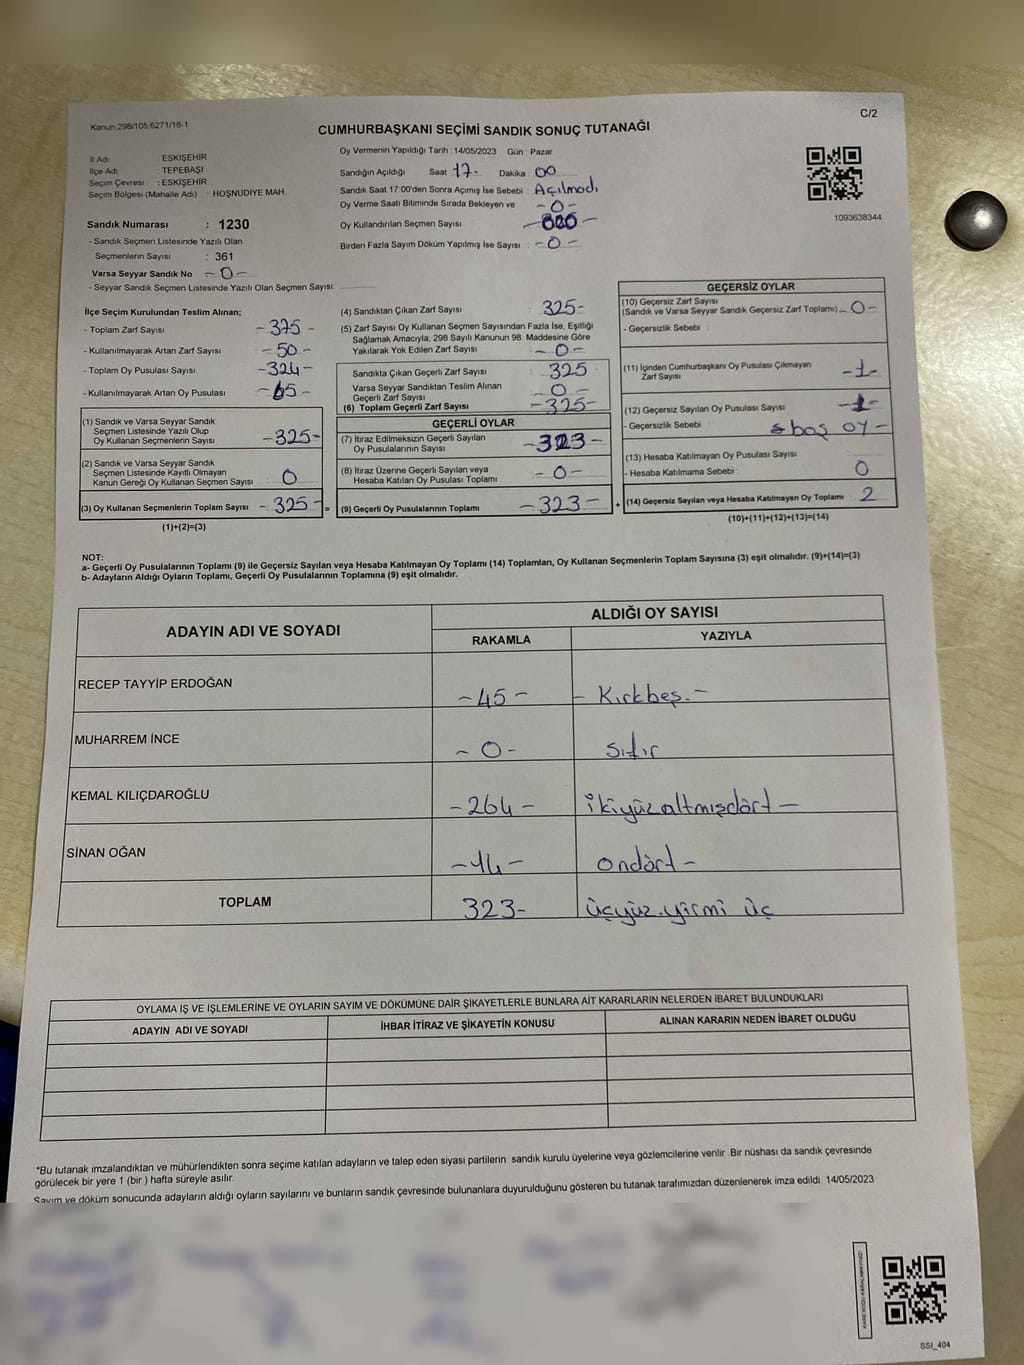 Kanun:298/105;6271/18-1
C/2
CUMHURBAŞKANI SEÇİMİ SANDIK SONUÇ TUTANAĞI
İl Adı : ESKİŞEHİR
İlçe Adı : TEPEBAŞI
Seçim Çevresi : ESKİŞEHİR
Seçim Bölgesi (Mahalle Adı) : HOŞNUDİYE MAH.
Sandık Numarası : 1230
- Sandık Seçmen Listesinde Yazılı Olan
Seçmenlerin Sayısı : 361
Varsa Seyyar Sandık No - 0 -
- Seyyar Sandık Seçmen Listesinde Yazılı Olan Seçmen Sayısı:
Oy Vermenin Yapıldığı Tarih : 14/05/2023 Gün : Pazar
Sandığın Açıldığı Saat 17- Dakika : 00
Sandık Saat 17:00'den Sonra Açımış İse Sebebi : Açılmadı
Oy Verme Saati Bitiminde Sırada Bekleyen ve - 0 -
Oy Kullandırılan Seçmen Sayısı
Birden Fazla Sayım Döküm Yapılmış İse Sayısı : - 0 -
1093638344
İlçe Seçim Kurulundan Teslim Alınan;
- Toplam Zarf Sayısı - 375 -
- Kullanılmayarak Artan Zarf Sayısı - 50 -
- Toplam Oy Pusulası Sayısı
- Kullanılmayarak Artan Oy Pusulası - 65 -
(1) Sandık ve Varsa Seyyar Sandık
Seçmen Listesinde Yazılı Olup
Oy Kullanan Seçmenlerin Sayısı - 325 -
(2) Sandık ve Varsa Seyyar Sandık
Seçmen Listesinde Kayıtlı Olmayan
Kanun Gereği Oy Kullanan Seçmen Sayısı : 0
(3) Oy Kullanan Seçmenlerin Toplam Sayısı - 325 - =
(1)+(2)=(3)
(4) Sandıktan Çıkan Zarf Sayısı : 325-
(5) Zarf Sayısı Oy Kullanan Seçmen Sayısından Fazla İse, Eşitliği
Sağlamak Amacıyla, 298 Sayılı Kanunun 98. Maddesine Göre
Yakılarak Yok Edilen Zarf Sayısı - 0 -
Sandıkta Çıkan Geçerli Zarf Sayısı : 325
Varsa Seyyar Sandıktan Teslim Alınan
Geçerli Zarf Sayısı : 0 -
(6) Toplam Geçerli Zarf Sayısı - 325 -
GEÇERLİ OYLAR
(7) İtiraz Edilmeksizin Geçerli Sayılan
Oy Pusulasının Sayısı - 323 -
(8) İtiraz Üzerine Geçerli Sayılan veya
Hesaba Katılan Oy Pusulası Toplamı - 0 -
(9) Geçerli Oy Pusulalarının Toplamı - 323 - +
GEÇERSİZ OYLAR
(10) Geçersiz Zarf Sayısı
(Sandık ve Varsa Seyyar Sandık Geçersiz Zarf Toplamı) - 0 -
- Geçersizlik Sebebi :
(11) İçinden Cumhurbaşkanı Oy Pusulası Çıkmayan
Zarf Sayısı - 1 -
(12) Geçersiz Sayılan Oy Pusulası Sayısı - 1 -
- Geçersizlik Sebebi : boş oy -
(13) Hesaba Katılmayan Oy Pusulası Sayısı
- Hesaba Katılmama Sebebi : 0
(14) Geçersiz Sayılan veya Hesaba Katılmayan Oy Toplamı : 2
(10)+(11)+(12)+(13)=(14)
NOT:
a- Geçerli Oy Pusulalarının Toplamı (9) ile Geçersiz Sayılan veya Hesaba Katılmayan Oy Toplamı (14) Toplamları, Oy Kullanan Seçmenlerin Toplam Sayısına (3) eşit olmalıdır. (9)+(14)=(3)
b- Adayların Aldığı Oyların Toplamı, Geçerli Oy Pusulalarının Toplamına (9) eşit olmalıdır.
ADAYIN ADI VE SOYADI
ALDIĞI OY SAYISI
RAKAMLA YAZIYLA
RECEP TAYYİP ERDOĞAN - 45 - - Kırkbeş. -
MUHARREM İNCE - 0 - sıfır
KEMAL KILIÇDAROĞLU - 264 - ikiyüzaltmışdört -
SİNAN OĞAN - 14 - ondört -
TOPLAM 323- üçyüz.yirmi üç
OYLAMA İŞ VE İŞLEMLERİNE VE OYLARIN SAYIM VE DÖKÜMÜNE DAİR ŞİKAYETLERLE BUNLARA AİT KARARLARIN NELERDEN İBARET BULUNDUKLARI
ADAYIN ADI VE SOYADI İHBAR İTİRAZ VE ŞİKAYETİN KONUSU ALINAN KARARIN NEDEN İBARET OLDUĞU
*Bu tutanak imzalandıktan ve mühürlendikten sonra seçime katılan adayların ve talep eden siyasi partilerin sandık kurulu üyelerine veya gözlemcilerine verilir .Bir nüshası da sandık çevresinde
görülecek bir yere 1 (bir ) hafta süreyle asılır.
Sayım ve döküm sonucunda adayların aldığı oyların sayılarını ve bunların sandık çevresinde bulunanlara duyurulduğunu gösteren bu tutanak tarafımızdan düzenlenerek imza edildi. 14/05/2023
SSI_404